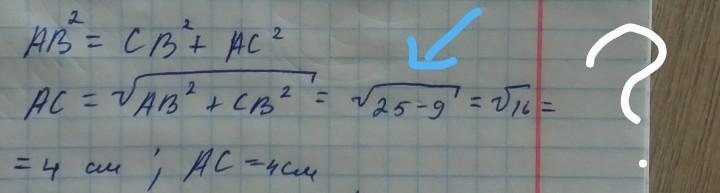 AB² = CB² + AC²
AC = √(AB² + CB²) = √(25-9) = √16 =
= 4 см ; AC = 4 см
?